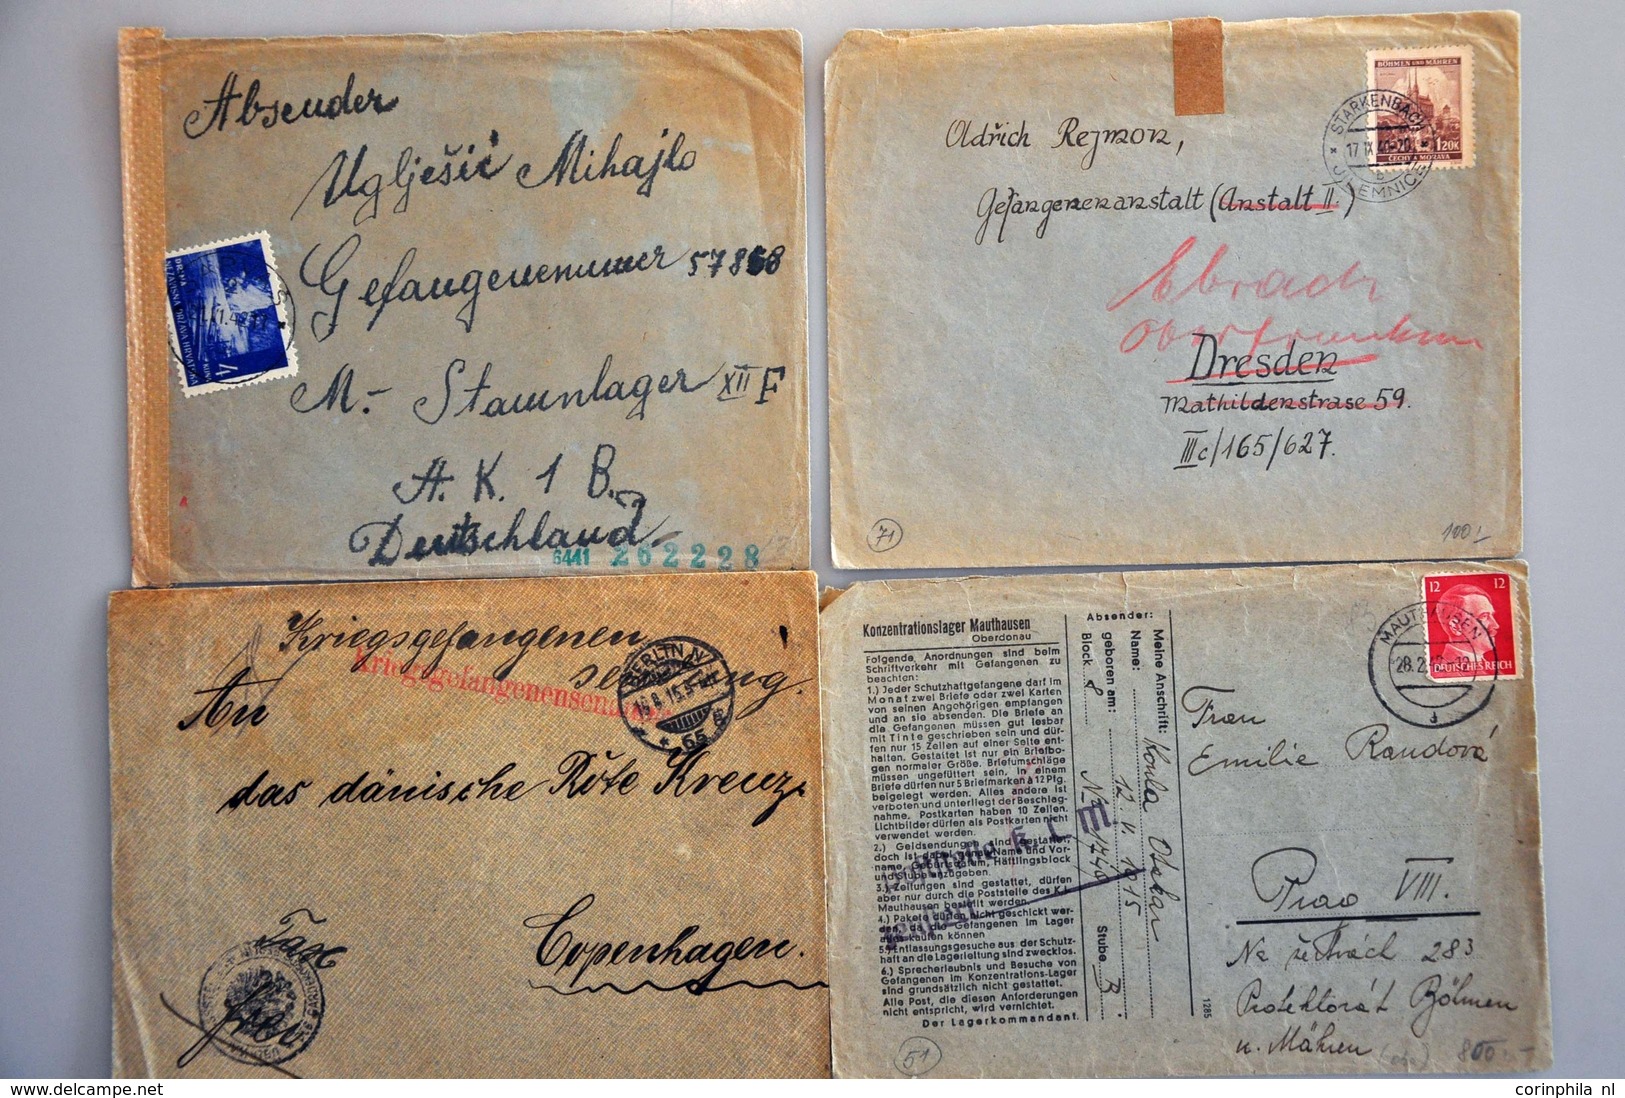 Absender
Uglješić Mihajlo
Gefangenenummer 57868
M.- Stammlager XII F
A. K. 1 B.
Deutschland
6441 262228
NEZAVISNA DRŽAVA HRVATSKA
17
KUNA
Oldřich Rejmon,
Gefangenenanstalt (Anstalt II.)
Ebrach
Oberfranken
Dresden
Mathildenstrase 59.
IIIc/165/627.
71
100.-
BÖHMEN UND MÄHREN
1.20K
ČECHY A MORAVA
STARKENBACH
17.IX.41-20
JILEMNICE
Kriegsgefangenen
sendung.
Kriegsgefangenensendung
BERLIN N
65
An
das dänische Rote Kreuz
Copenhagen.
Taxe
frei
Konzentrationslager Mauthausen
Oberdonau
Folgende, Anordnungen sind beim
Schriftverkehr mit Gefangenen zu
beachten:
1.) Jeder Schutzhaftgefangene darf im
Monat zwei Briefe oder zwei Karten
von seinen Angehörigen empfangen
und an sie absenden. Die Briefe an
die Gefangenen müssen gut lesbar
mit Tinte geschrieben sein und dür-
fen nur 15 Zeilen auf einer Seite ent-
halten. Gestattet ist nur ein Briefbo-
gen normaler Größe. Briefumschläge
müssen ungefüttert sein. In einem
Briefe dürfen nur 5 Briefmarken à 12 Pfg.
beigelegt werden. Alles andere ist
verboten und unterliegt der Beschlag-
nahme. Postkarten haben 10 Zeilen.
Lichtbilder dürfen als Postkarten nicht
verwendet werden.
2.) Geldsendungen sind gestattet,
doch ist dabei Name und Vor-
name, Geburtsdatum, Häftlingsblock
und Stube anzugeben.
3.) Zeitungen sind gestattet, dürfen
aber nur durch die Poststelle des K.L.
Mauthausen bestellt werden.
4.) Pakete dürfen nicht geschickt wer-
den, da die Gefangenen im Lager
alles kaufen können
5.) Entlassungsgesuche aus der Schutz-
haft an die Lagerleitung sind zwecklos.
6.) Sprecherlaubnis und Besuche von
Gefangenen im Konzentrations-Lager
sind grundsätzlich nicht gestattet.
Alle Post, die diesen Anforderungen
nicht entspricht, wird vernichtet.
Der Lagerkommandant.
Poststelle K.L.M.
Absender:
Meine Anschrift:
Name: Kouba Otakar
geboren am: 12. V. 1915
Block 8 Stube B.
1285
Frau
Emilie Randová
Prag VIII.
Na žertvách 283
Protektorát Böhmen
u. Mähren
800.-
51
12 12
DEUTSCHES REICH
MAUTHAUSEN
28.2.
corinphila nl